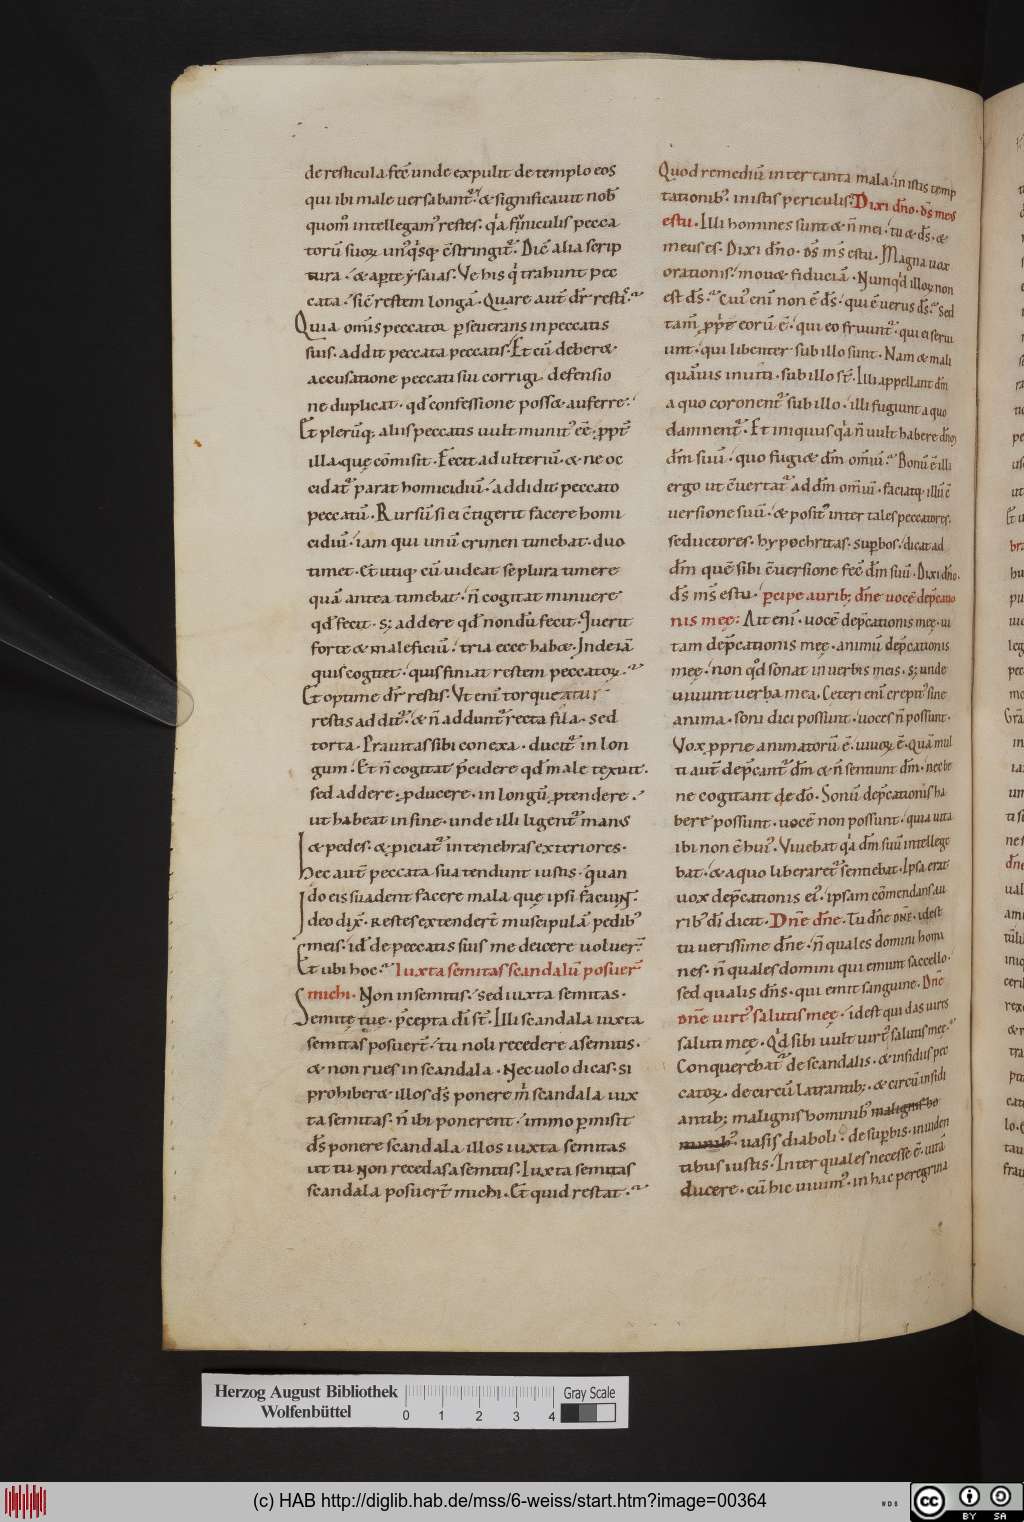 de resticula fec̄ unde expulit de templo eos
qui ibi male versabant᷑· & significavit nob̄
quom̄ intellegam᷒ restes· q̇a funiculis pecca
torū suoꝝ unꝰq̇sq· c̄stringit᷑· Dic̄ alia scrip
tura· & apte ẏsaias· Ve his q̇ trahunt pec
cata· sic̄ restem longā· Quare aut̄ dr̄ resti
Quia om̄is peccator pseverans in peccatis
suis· addit peccata peccatis· Et cū deber&
accusatione peccati sui corrigi defensio
ne duplicat· qd̄ confessione poss& auferre·
Et plerūq; aliis peccatis vult munitꝰ eē ꝓpt̄
illa quę cōmisit· Fecit adulteriū· & ne oc
cidat᷑ parat homicidiū· addidit peccato
peccatū· Rursū si ei c̄tigerit facere homi
cidiū· iam qui unū crimen timebat· duo
timet· Et utiq; cū videat se plura timere
quā antea timebat· n̄ cogitat minuere
qd̄ fecit· s; addere qd̄ nondū fecit· Querit
forte & maleficiū· tria ecce hab&· Inde iā
quis cogitet· quis finiat restem peccatoꝝ·
Et optime dr̄ restis· Ut eni torqueatur
restis addit᷑· & n̄ addunt᷑ recta fila· sed
torta· Pravitas sibi conexa· ducit᷑ in lon
gum· Et n̄ cogitat p̄cidere qd̄ male texuit·
sed addere· ꝓducere· in longū ꝓtendere·
ut habeat in fine· unde illi ligent᷑ manꝰ
& pedes· & ꝓiciat᷑ in tenebras exteriores·
Hec aut̄ peccata sua tendunt iustis· quan
do eis suadent facere mala que ipsi faciun̄
Ideo dix̄· Restes extender̄t muscipulā pedibꝰ
meis· id ē de peccatis suis me deicere voluer̄
Et ubi hoc· Iuxta semitas scandalū posuer̄
michi· Non in semitis· sed iuxta semitas·
Semitę tuę· p̄cepta di st̄· Illi scandala iuxta
semitas posuer̄t· tu noli recedere a semitis·
& non rues in scandala· Nec volo dicas· si
prohiber& illos ds̄ ponere m̄ scandala iux
ta semitas· n̄ ibi ponerent· immo pmisit
ds̄ ponere scandala illos iuxta semitas
ut tu non recedas a semitis· Iuxta semitas
scandala posuer̄t michi· Et quid restat·
Quod remediū inter tanta mala· in istis temp
tationibꝰ· in istis periculis· Dixi dn̄o· ds̄ meꝰ
es tu· Illi homines sunt & n̄ mei· tu & ds̄· &
meus es· Dixi dn̄o· ds̄ ms̄ es tu· Magna vox
orationis· mov& fiduciā· Numq̇d illoꝝ non
est ds̄· Cuiꝰ eni non ē ds̄· qui ē verus ds̄· Sed
tam̄ ꝓprie eorū ē· qui eo fruunt᷑· qui ei servi
unt· qui libenter sub illo sunt· Nam & mali
quāvis inviti· sub illo st̄· Illi appellant dm̄
a quo coronent᷑ sub illo· illi fugiunt a quo
damnent᷑· Et iniquus q̇a n̄ vult habere dn̄m
dm̄ suū· quo fugi& dm̄ omiū· Bonū ē illi
ergo ut c̄vertat᷑ ad dm̄ omiū· faciatq; illū c̄
versione suū· & positꝰ inter tales peccatores·
seductores· hypochritas· supbos· dicat ad
dm̄ quē sibi c̄versione fec̄ dm̄ suū· Dixi dn̄o·
ds̄ ms̄ es tu· pcipe aurib; dn̄e vocē dep̄catio
nis meę· Ait eni· vocē dep̄cationis meę· vi
tam dep̄cationis meę· animū dep̄cationis
meę· non qd̄ sonat in verbis meis· s; unde
vivunt verba mea· Ceteri eni crepitꝰ sine
anima· soni dici possunt· voces n̄ possunt·
Vox ꝓprie animatorū ē· vivoꝝ ē· Quā mul
ti aut̄ dep̄cant᷑ dm̄ & n̄ sentiunt dm̄· nec be
ne cogitant de do· Sonū dep̄cationis ha
bere possunt· vocē non possunt· quia vita
ibi non ē huiꝰ· Vivebat q̇a dm̄ suū intellege
bat· & a quo liberaret᷑ sentiebat· Ipsa erat
vox dep̄cationis eiꝰ· ipsam cōmendans au
ribꝰ di dicit· Dn̄e dn̄e· Tu dn̄e dn̄e· id est
tu verissime dn̄e· n̄ quales domini homi
nes· n̄ quales domini qui emunt saccello·
sed qualis dn̄s· qui emit sanguine· Dn̄e
dn̄e virtꝰ salutis meę· id est qui das virtꝰ
saluti meę· Qd̄ sibi vult virtꝰ salutis meę·
Conquerebat᷑ de scandalis· & insidiis pec
catoꝝ· de circū latrantib;· & circū insidi
antib; malignis hominibꝰ malignis ho
minibꝰ· vasis diaboli· de supbis· inviden
tibus iustis· Inter quales necesse ē· vitā
ducere· cū hic vivimꝰ· in hac peregrina
Herzog August Bibliothek
Wolfenbüttel
0 1 2 3 4
Gray Scale
(c) HAB http://diglib.hab.de/mss/6-weiss/start.htm?image=00364
cc BY SA